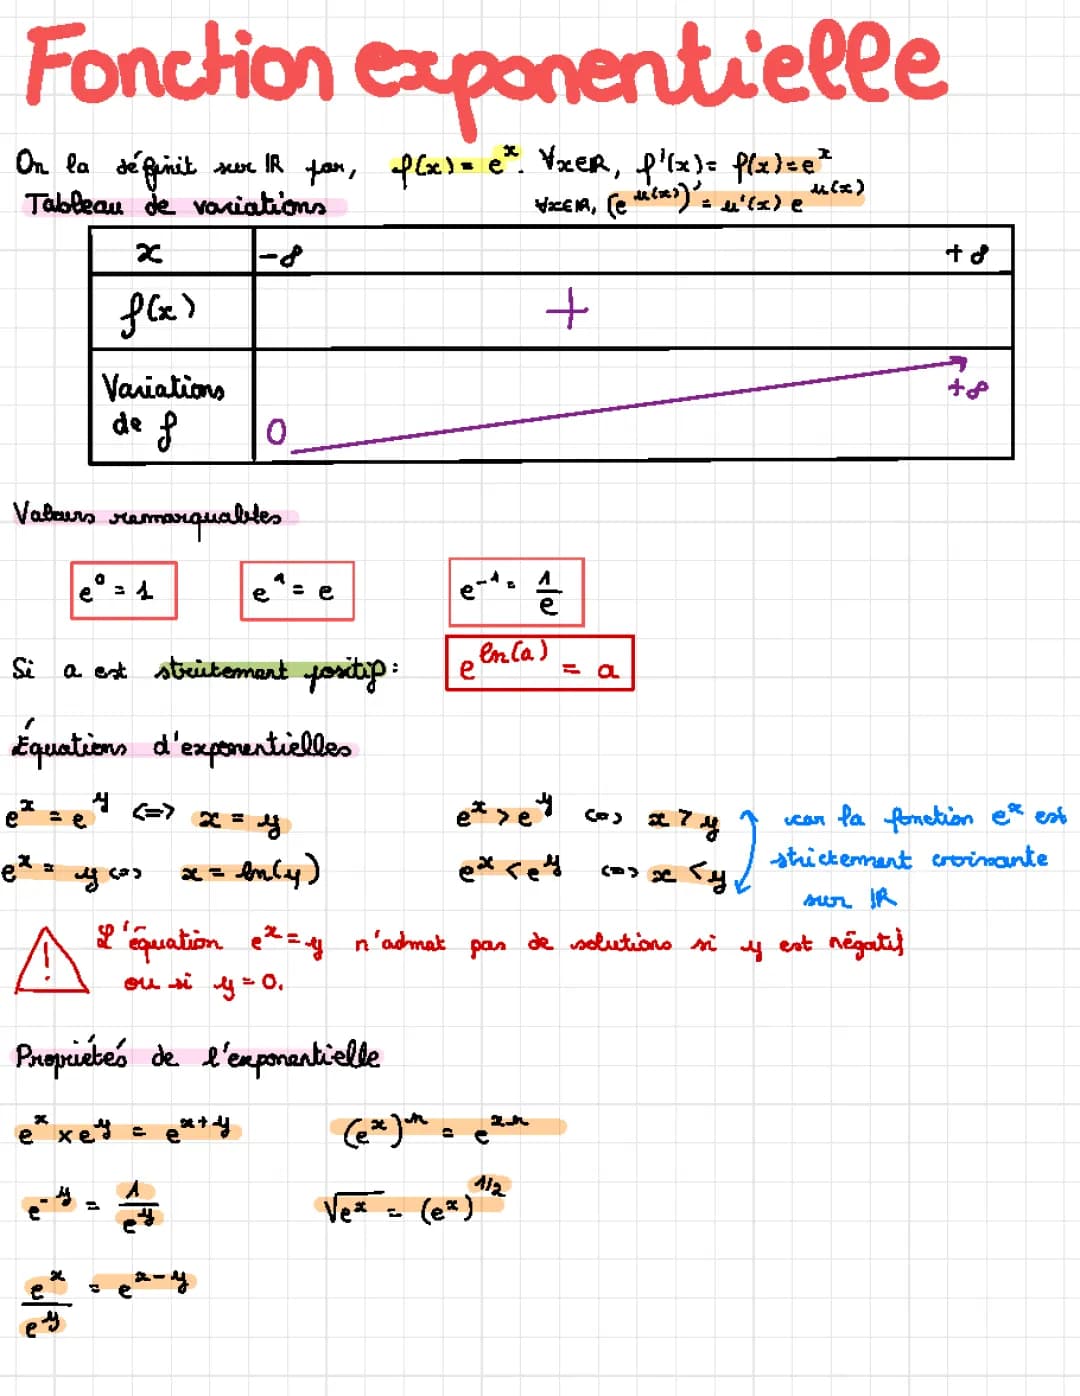 Fonction exponentielle
On la définit sur IR par, f(x) = e^x. ∀x∈R, f'(x) = f(x) = e^x
Tableau de variations ∀x∈R, (e^{u(x)})' = u'(x) e^{u(x)}
x -∞ +∞
f(x) +
Variations
de f 0 +∞
Valeurs remarquables
e^0 = 1 e^1 = e e^{-1} = 1/e
Si a est strictement positif : e^{ln(a)} = a
Équations d'exponentielles
e^x = e^y <=> x = y e^x > e^y <=> x > y car la fonction e^x est
e^x = y <=> x = ln(y) e^x < e^y <=> x < y strictement croissante
sur IR
! L'équation e^x = y n'admet pas de solutions si y est négatif
ou si y = 0.
Propriétés de l'exponentielle
e^x × e^y = e^{x+y} (e^x)^n = e^{x·n}
e^{-y} = 1/e^y √e^x = (e^x)^{1/2}
e^x/e^y = e^{x-y}